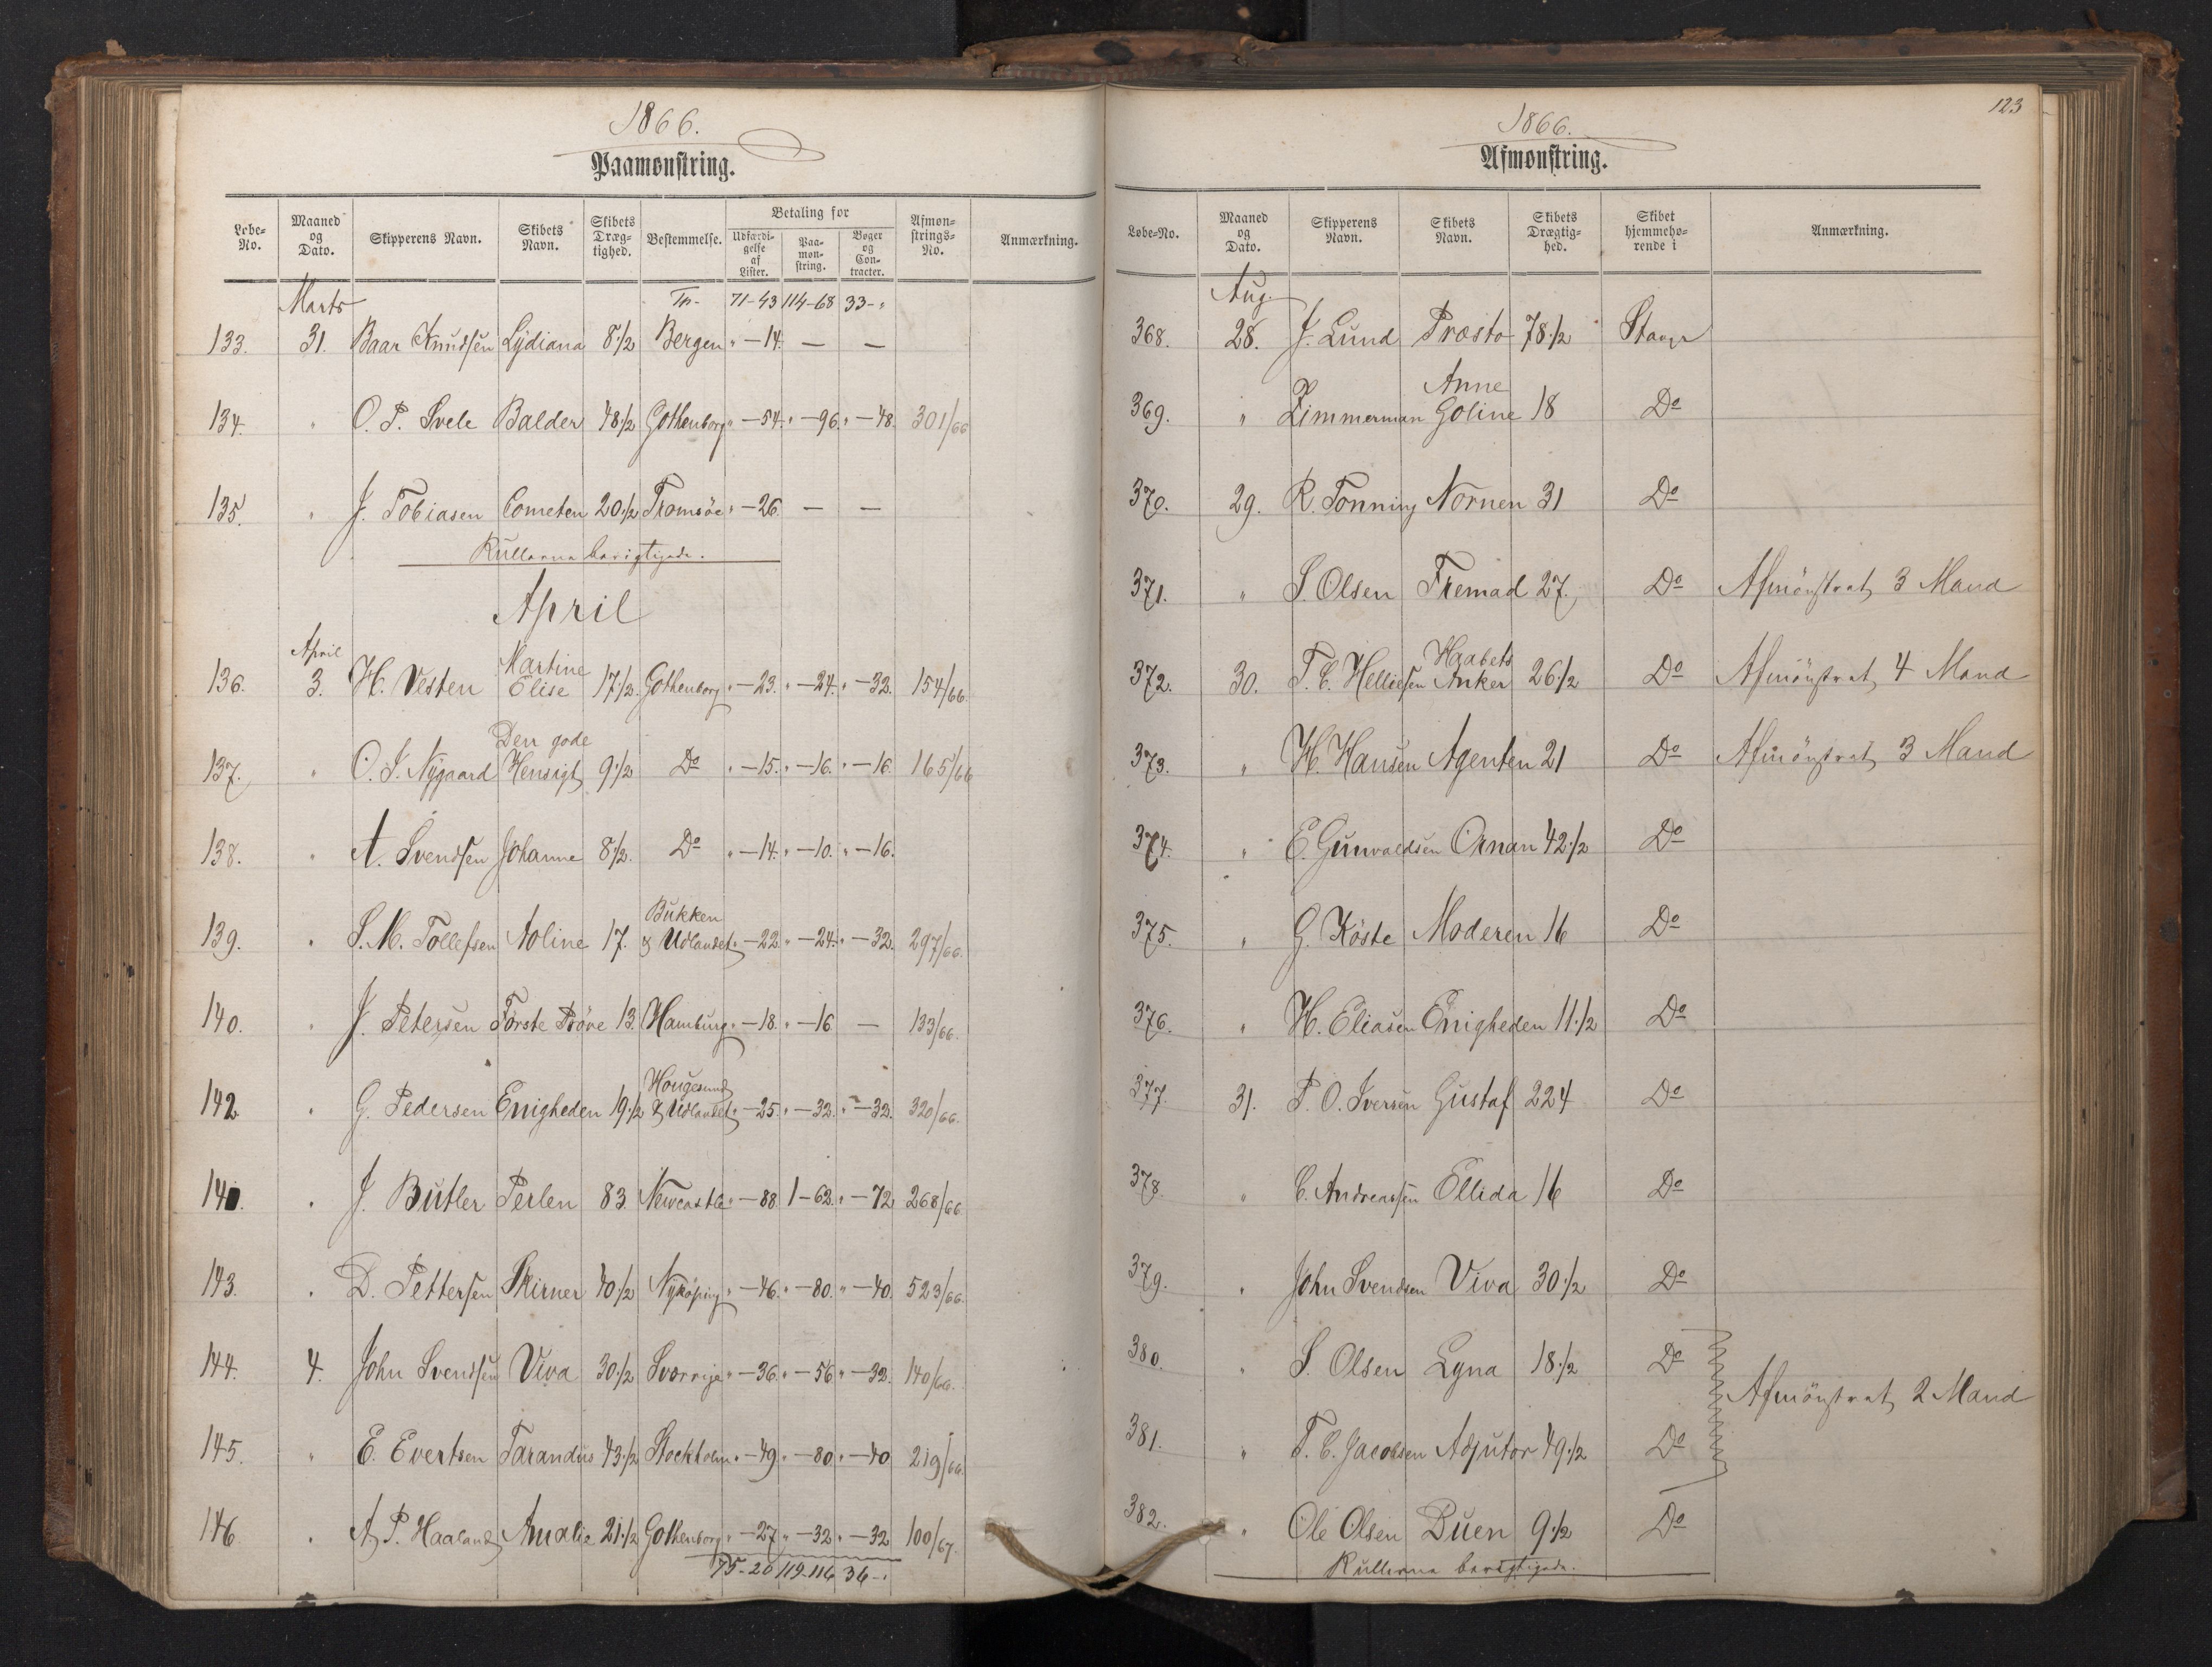 1866.
Paamønstring.
Løbe-No. Maaned og Dato. Skipperens Navn. Skibets Navn. Skibets Dræg-tighed. Bestemmelse. Betaling for Udfærdi-gelse af Lister. Paa-møn-string. Bøger og Con-tracter. Afmøn-strings-No. Anmærkning.
Marts Tr. 71-43 114-68 33-"
133. 31. Baar Knudsen Lydiana 8 1/2 Bergen " -14. — —
134. " O. P. Svele Balder 48 1/2 Gothenborg " -54. " -96. " -48. 301/66
135. " J. Tobiasen Cometen 20 1/2 Tromsöe " -26 — —
Rullerne berigtigede.
April
April Martine
136. 3. H. Vesten Elise 17 1/2. Gothenborg " -23. " -24. " -32. 154/66.
Den gode
137. " O. J. Nygaard Hensigt 9 1/2 Do " -15. " -16. " -16. 165/66
138. " A. Svendsen Johanne 8 1/2. Do " -14. " -10. " -16.
Bukken
139. " S. M. Tollefsen Aoline 17. & Udlandet " -22. " -24. " -32. 297/66.
140. " J. Petersen Förste Pröve 13. Hamburg " -18. " -16 — 133/66.
Hougesund
142. " G. Pedersen Enigheden 19 1/2 & Udlandet " -25. " -32. " -32. 320/66.
141. " J. Butler Perlen 83. Newcastle " -88. 1-62. " -72 268/66
143. " D. Pettersen Skirner 40 1/2 Nyköping " -46. " -80. " -40. 523/66.
144. 4. John Svendsen Viva 30 1/2 Sverrige " -36. " -56 " -32. 140/66.
145. " E. Evertsen Tarandus 43 1/2 Stockholm " -49. " -80. " -40 219/66.
146 " A. P. Haaland Amalie 21 1/2 Gothenborg " -27. " -32. " -32 100/67.
75-20 119-116 36-"
123
1866.
Afmønstring.
Løbe-No. Maaned og Dato. Skipperens Navn. Skibets Navn. Skibets Drægtig-hed. Skibet hjemmehø-rende i Anmærkning.
Aug.
368. 28. J. Lund Præsto 78 1/2 Stavgr
Anne
369. " Zimmerman Goline 18 Do
370. 29. R. Tonning Nornen 31 Do
371. " S. Olsen Fremad 27. Do Afmönstret 3 Mand
Haabets
372. 30. T. C. Helliesen Anker 26 1/2 Do Afmönstret 4 Mand
373. " H. Hansen Agenten 21 Do Afmönstret 3 Mand
374. " E. Gunvaldsen Ornan 42 1/2 Do
375. " G. Köste Moderen 16 Do
376. " H. Eliasen Enigheden 11 1/2 Do
377. 31. P. O. Iversen Gustaf 224 Do
378. " C. Andreassen Ellida 16 Do
379. " John Svendsen Viva 30 1/2 Do
380. " S. Olsen Lyna 18 1/2 Do
Afmönstret 2 Mand
381. " T. C. Jacobsen Adjutor 49 1/2 Do
382. " Ole Olsen Duen 9 1/2 Do
Rullerne berigtigede.